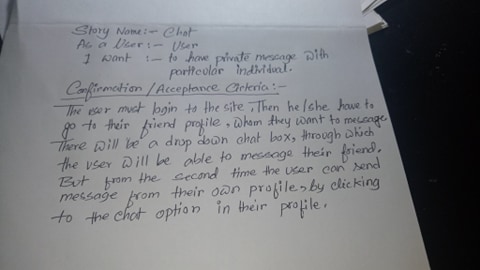 Story Name:- Chat
As a User:- User
I want :- to have private message with
particular individual.
Confirmation / Acceptance Criteria:-
The user must login to the site, Then he/she have to
go to their friend profile, whom they want to message
There will be a drop down chat box, through which
the user will be able to message their friend.
But from the second time the user can send
message from their own profile, by clicking
to the chat option in their profile.